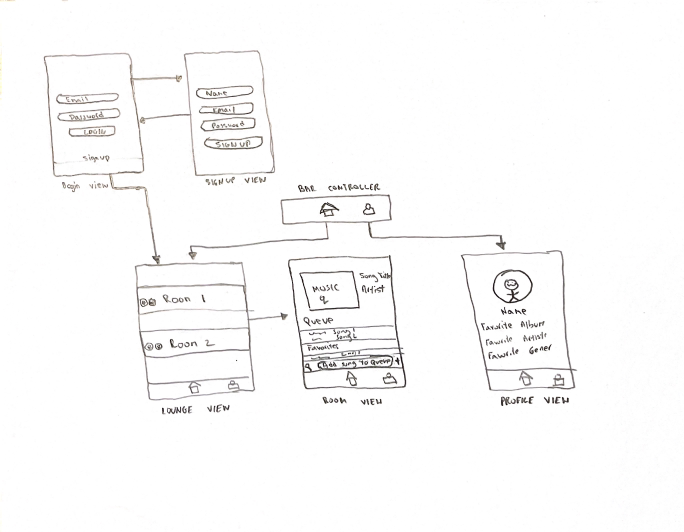 Email
Password
LOGIN
Signup
Login view
Name
Email
Password
SIGN UP
SIGNUP VIEW
BAR CONTROLLER
Room 1
Room 2
LOUNGE VIEW
MUSIC
Song Title
Artist
Queue
Song 1
Song 2
Favorites
Song 1
Add song to Queue
ROOM VIEW
Name
Favorite Album
Favorite Artists
Favorite Gener
PROFILE VIEW